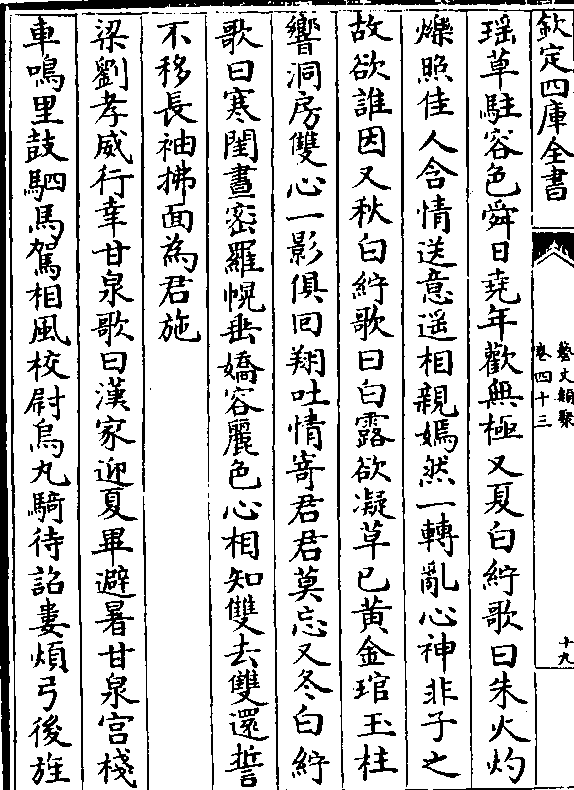 欽定四庫全書
藝文類聚
卷四十三
十九
瑶草駐容色舜日堯年歡無極又夏白紵歌曰朱火灼
爍照佳人含情送意遥相親嫣然一轉亂心神非子之
故欲誰因又秋白紵歌曰白露欲凝草已黄金琯玉柱
響洞房雙心一影俱回翔吐情寄君君莫忘又冬白紵
歌曰寒閨晝密羅幌垂嬌容麗色心相知雙去雙還誓
不移長袖拂面為君施
梁劉孝威行幸甘泉歌曰漢家迎夏畢避暑甘泉宫棧
車鳴里鼓駟馬駕相風校尉烏丸騎待詔婁煩弓後旌